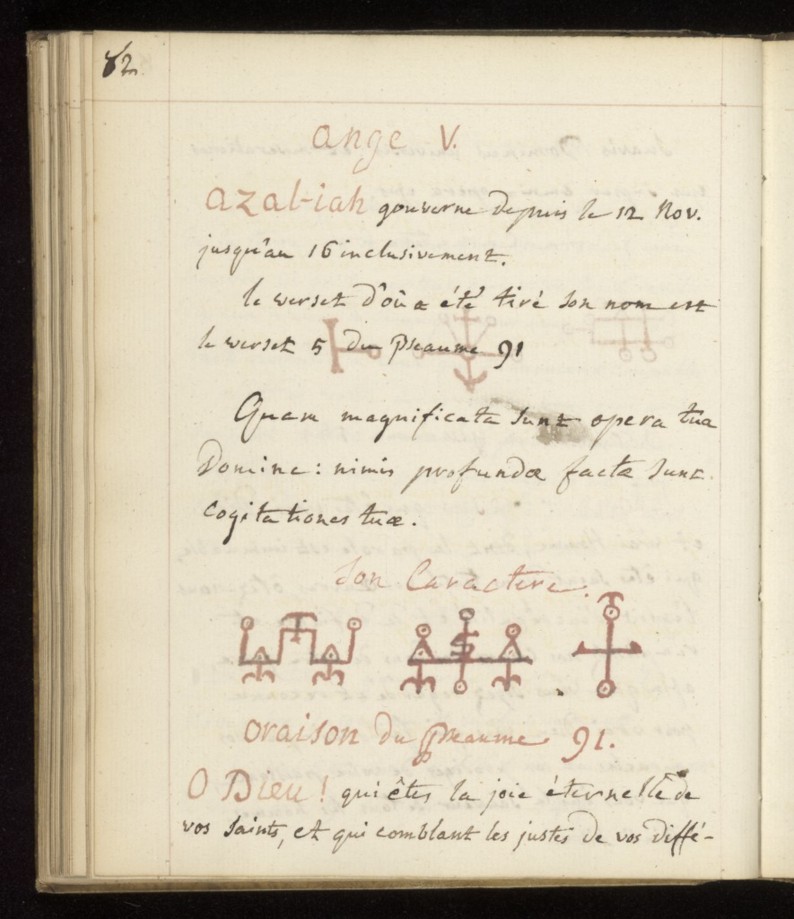 82
ange V.
azal-iah gouverne depuis le 12 Nov.
jusqu'au 16 inclusivement.
le verset d'où a été tiré son nom est
le verset 5 du Pseaume 91
Quam magnificata sunt opera tua
Domine: nimis profundæ factæ sunt
cogitationes tuæ.
Son Caractere.
oraison du pseaume 91.
O Dieu! qui êtes la joie éternelle de
vos saints, et qui comblant les justes de vos diffé-